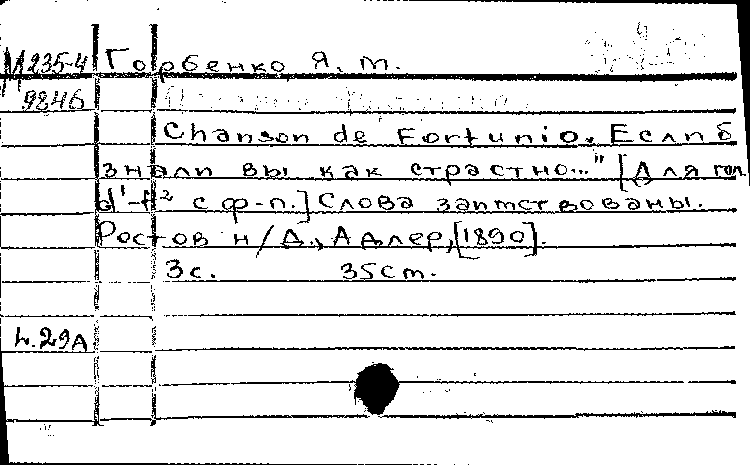 М235-4 Горбенко Я. М.
9846
Chanson de Fortunio. Если б
знали вы как страстно..." [Для гол.
d¹-f² с ф-п.] Слова заимствованы.
Ростов н/Д., Адлер, [1890].
3с. 35cm.
4.29А